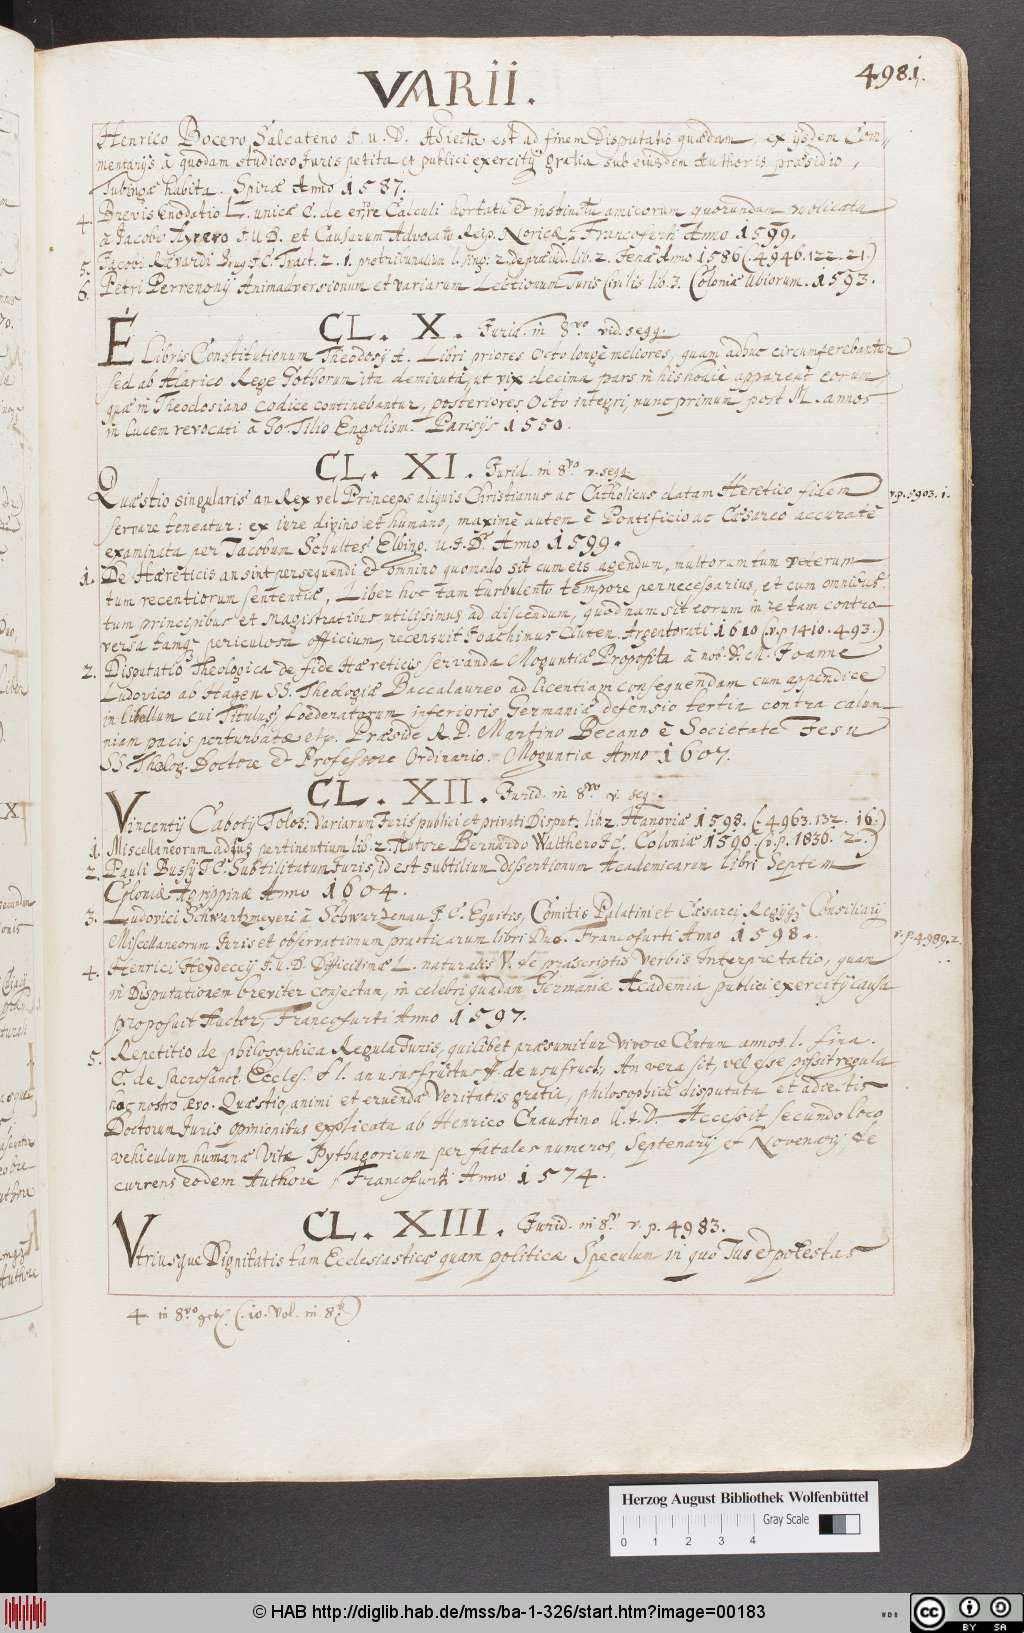 VARII.
4981.
Henrico Bocero, Salcateno J. U. D. Adiecta est ad finem Disputatio quædam, ex ijsdem Com-
mentarijs à quodam studioso Juris petita et publici exercitij gratia sub eiusdem Authoris præsidio,
Tubingæ habita. Spiræ Anno 1587.
4. Brevis Enodatio L. unicæ C. de errore Calculi hortatu et instinctu amicorum quorundam
à Jacobo Ayrero J U D. et Causarum Advocato Reip. Noricæ, Francofurti Anno 1599.
5. Jacobi Rævardi Brug. JC. Tract. 2. 1. lib. 2. Jenæ Anno 1586 (. 4946. 122. 21.)
6. Petri Perrenonij Animadversionum et variarum Lectionum Juris Civilis lib. 3. Coloniæ Ubiorum. 1593.
CL. X. Jurid. in 8vo vid. seqq.
E Libris Constitutionum Theodosij A. Libri priores Octo longè meliores, quam adhuc circumferebantur
sed ab Alarico Rege Gothorum ita deminuta, ut vix decima pars in his hodie appareat eorum
quæ in Theodosiano codice continebantur, posteriores Octo integri, nunc primum post M. annos
in lucem revocati à Jo. Tilio Engolism. Parisijs 1550.
CL. XI. Jurid. in 8vo v. seqq.
Quæstio singularis an Rex vel Princeps aliquis Christianus ac Catholicus datam Hæretico fidem
v. p. 5903. 1.
servare teneatur: ex iure divino et humano, maximè autem è Pontificio ac Cæsareo accuratè
examinata per Jacobum Schultes Elbing. U. J. Dr. Anno 1599.
1. De Hæreticis an sint persequendi et omnino quomodo sit cum eis agendum, multorum tum veterum
tum recentiorum sententiæ, Liber hoc tam turbulento tempore pernecessarius, et cum omnibus
tum principibus et Magistratibus utilissimus ad discendum, quodnam sit eorum in re tam contro-
versa tamq; periculosa officium, recensuit Joachimus Cluten. Argentorati 1610 (v. p 1410. 493.)
2. Disputatio Theologica de fide Hæreticis servanda Moguntiæ Proposita à nob. D. M. Joanne
Ludovico ab Hagen SS. Theologiæ Baccalaureo ad licentiam consequendam cum appendice
in libellum cui Titulus, Foederatorum inferioris Germaniæ defensio tertia contra calum-
niam pacis perturbatæ etc. Præside R. P. Martino Becano è Societate Jesu
SS. Theolog. Doctore et Professore Ordinario. Moguntiæ Anno 1607.
CL. XII. Jurid. in 8vo v. seq.
Vincentij Cabotij Tolos: Variarum Juris publici et privati Disput. lib. 2. Hanoviæ 1598. (. 4963. 132. 16.)
1. Miscellaneorum ad Jus pertinentium lib. 2. Autore Bernardo Walthero JC. Coloniæ 1596. (v. p. 1836. 2.)
2. Pauli Bussij JC. Subtilitatum Juris, id est subtilium dissertionum Academicarum libri Septem
Coloniæ Agrippinæ Anno 1604.
3. Ludovici Schwartzmeyeri à Schwurzenau J. C. Equitis, Comitis Palatini et Cæsarei Regijq; Consiliarij
Miscellaneorum Juris et observationum practicarum libri Duo. Francofurti Anno 1598.
v. p. 4989. 2.
4. Henrici Heydeccij J. U. D. Difficilimæ L. naturalis V. de præscriptis Verbis Interpretatio, quam
in Disputationem breviter conjectam, in celebri quadam Germaniæ Academia publici exercitij causa
proposuit Auctor, Francofurti Anno 1597.
5. Repetitio de philosophica Regula Juris, quilibet præsumitur Vivere Centum annos. l. fina.
C. de Sacrosanct. Eccles. et l. an ususfructus ff. de usufruct; An vera sit, vel esse possit regula
hoc nostro ævo. Quæstio, animi et eruendæ Veritatis gratia, philosophicè disputata et adiectis
Doctorum Juris opinionibus explicata ab Henrico Cnaustino U. J. D. Accessit secundo loco
vehiculum humanæ Vitæ Pythagoricum per fatales numeros, Septenarij et Novenarij de
currens eodem Authore, Francofurti Anno 1574.
CL. XIII. Jurid. in 8vo v. p. 4983.
Utriusque Dignitatis tam Ecclesiasticæ quam politicæ Speculum in quo Jus et potestas
4 in 8vo (. 10. Vol. in 8)
Herzog August Bibliothek Wolfenbüttel
Gray Scale
0 1 2 3 4
© HAB http://diglib.hab.de/mss/ba-1-326/start.htm?image=00183
WDB
cc BY SA